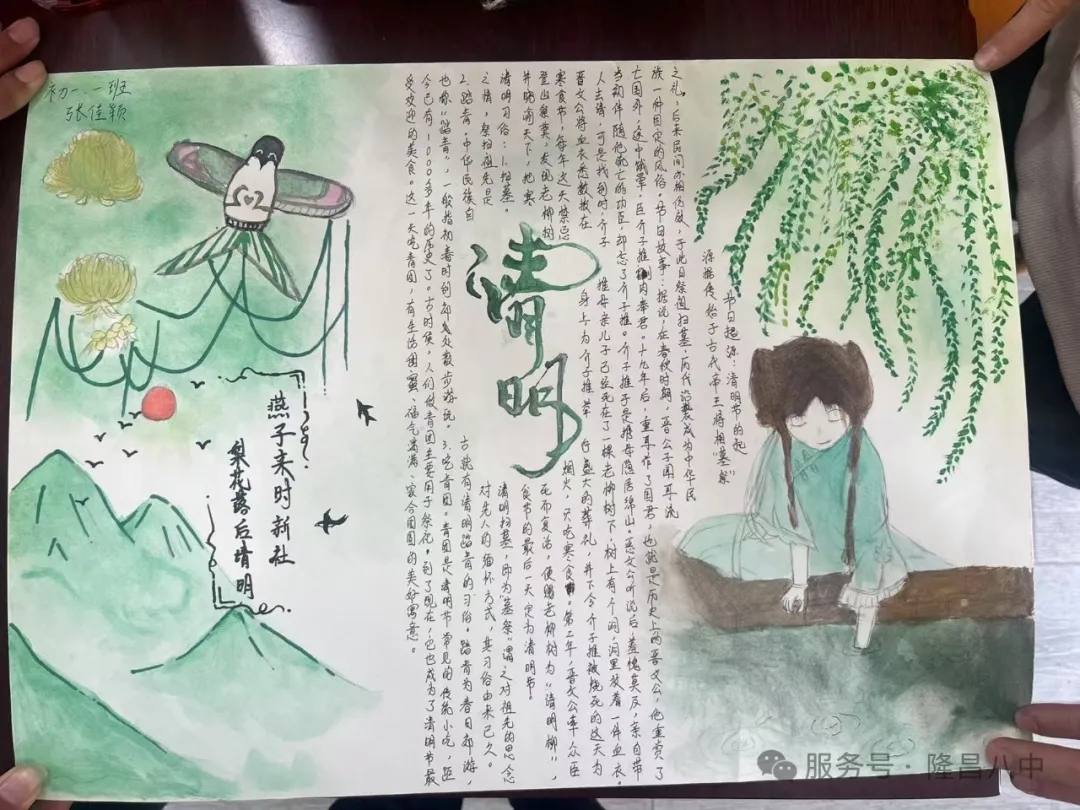 初一.一班
张佳颖
节日起源:清明节的起
源据传始于古代帝王将相“墓祭”
之礼,后来民间亦相仿效,于此日祭祖扫墓,历代沿袭成为中华民
族一种固定的风俗。节日故事:据说,在春秋时期,晋公子重耳流
亡国外,途中饿晕,臣介子推割肉奉君。十九年后,重耳作了国君,也就是历史上的晋文公,他重赏了
当初伴随他流亡的功臣,却忘了介子推。介子推于是携母隐居绵山。晋文公听说后,羞愧莫及,亲自带
人去请,可是找到时,介子推母亲儿子已经死在了一棵老柳树下,树上有个洞,洞里放着一件血衣。
晋文公将血衣悉数披在身上,为介子推举行盛大的葬礼,并下令介子推被烧死的这天为
寒食节,每年这天禁忌烟火,天吃寒食。第二年,晋文公率众臣
登山祭奠,发现老柳树死而复活,便赐老柳树为“清明柳”,
并晓谕天下,把寒食节的最后一天定为清明节。
清明习俗:1.扫墓。清明扫墓,即为“墓祭”谓之对祖先的思念
之情,祭扫祖先是对先人的缅怀方式,其习俗由来已久。
2.踏青。中华民族自古就有清明踏青的习俗。踏青为春日郊游,
也称“踏青”,一般指初春时到郊外散步游玩。3.吃青团。青团是清明节常见的传统小吃,距
今已有1000多年的历史了。古时候,人们做青团主要用于祭祀。到了现在,它也成为了清明节最
受欢迎的美食。这一天吃青团,有生活甜蜜、福气满满、家合团圆的美好寓意。
清明
燕子来时新社
梨花落后清明
服务号·隆昌八中